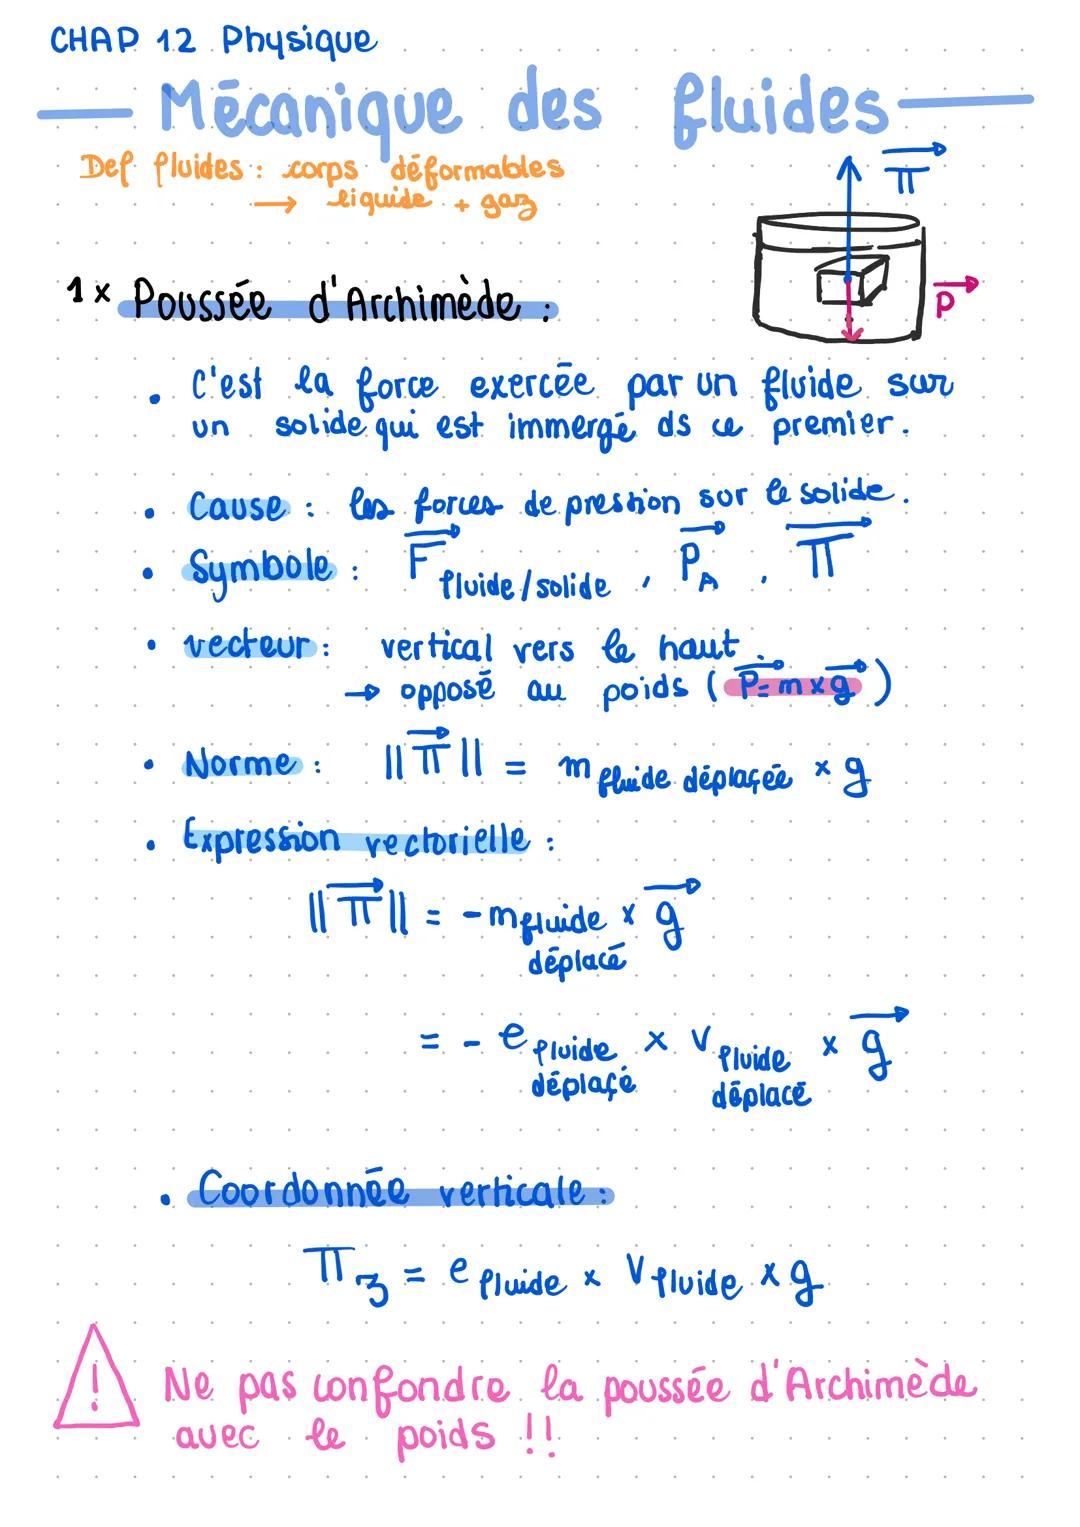 CHAP 12 Physique
Mécanique des fluides
Def fluides : corps déformables
→ liquide + gaz
π
P
1x Poussée d'Archimède :
• C'est la force exercée par un fluide sur
un solide qui est immergé ds ce premier.
• Cause : les forces de pression sur le solide.
• Symbole : F fluide/solide , P A , π
• vecteur : vertical vers le haut.
→ opposé au poids ( P = m x g )
• Norme : ||π|| = m fluide déplaçée x g
• Expression vectorielle :
||π|| = - m fluide x g
déplacé
= - e fluide x V fluide x g
déplaçé déplacé
• Coordonnée verticale :
π z = e fluide x V fluide x g
! Ne pas confondre la poussée d'Archimède
avec le poids !!